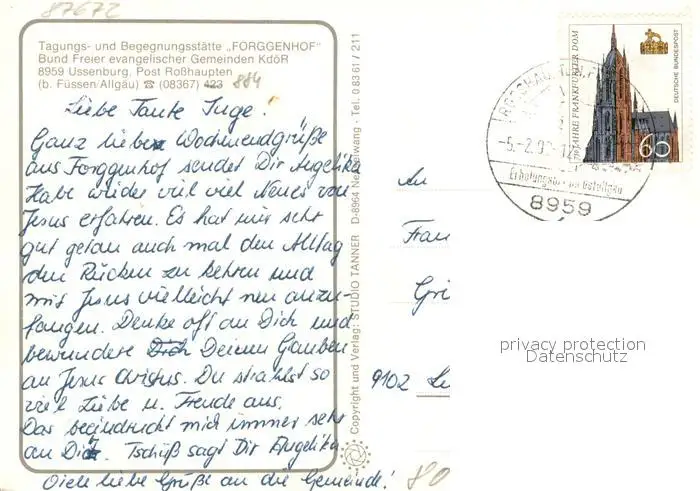 87672
Tagungs- und Begegnungsstätte „FORGGENHOF"
Bund Freier evangelischer Gemeinden KdöR
8959 Ussenburg, Post Roßhaupten
(b. Füssen/Allgäu) ☎ (08367) 423 884
Liebe Tante Inge!
Ganz liebe Wochenendgrüße
aus Forggenhof sendet Dir Angelika
Habe wieder viel viel Neues von
Jesus erfahren. Es hat mir sehr
gut getan auch mal den Alltag
den Rücken zu kehren und
mit Jesus vielleicht neu anzu-
fangen. Denke oft an Dich und
bewundere Dich Deinen Glauben
an Jesus Christus. Du strahlst so
viel Liebe u. Freude aus.
Das beeindruckt mich immer sehr
an Dir. Tschüß sagt Dir Angelika
Viele liebe Grüße an die Gemeinde!
Copyright und Verlag: STUDIO TANNER D-8964 Nesselwang - Tel. 0 83 61 / 211
750 JAHRE FRANKFURTER DOM
DEUTSCHE BUNDESPOST
60
-5.-2.9
8959
An
Frau
9102
80
privacy protection
Datenschutz